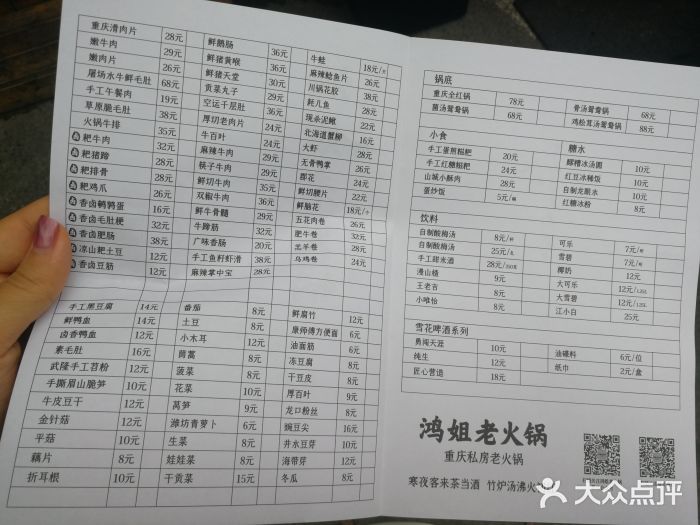 重庆滑肉片 28元
嫩牛肉 29元
嫩肉片 26元
屠场水牛鲜毛肚 68元
手工午餐肉 19元
草原脆毛肚 38元
火锅牛排 35元
耙牛肉 32元
耙猪蹄 28元
耙排骨 28元
耙鸡爪 26元
香卤鹌鹑蛋 16元
香卤毛肚梗 32元
香卤肥肠 38元
凉山粑土豆 12元
香卤豆筋 12元
鲜鹅肠 36元
鲜猪黄喉 36元
鲜猪天堂 30元
贡菜丸子 29元
空运千层肚 36元
厚切老肉片 24元
牛百叶 24元
麻辣牛肉 29元
筷子牛肉 29元
鲜切牛肉
双椒牛肉
鲜牛骨髓
牛蹄筋 32元
广味香肠 20元
手工鱼籽虾滑 38元
麻辣掌中宝 28元
牛蛙 18元/
麻辣鲶鱼片 26元
川锅花胶 38元
耗儿鱼 28元
现杀泥鳅 22元
北海道蟹柳 16元
大虾 28元
无骨鸭掌
郡花 24元
鲜切腰片 22元
鲜脑花 18元/个
五花肉卷 26元
肥牛卷 32元
羔羊卷 28元
乌鸡卷 24元
手工黑豆腐 14元
鲜鸭血 14元
卤香鸭血 12元
素毛肚 16元
武隆手工苕粉 12元
手撕眉山脆笋 10元
牛皮豆干 12元
金针菇 12元
平菇 10元
藕片 8元
折耳根 10元
番茄 8元
土豆 8元
小木耳 12元
茼蒿 8元
菠菜 8元
花菜 10元
莴笋 9元
潍坊青萝卜 6元
生菜 8元
娃娃菜 8元
干贡菜 15元
鲜腐竹 12元
康师傅方便面 6元
油面筋 6元
冻豆腐 8元
干豆皮 8元
厚百叶 8元
龙口粉丝 8元
豌豆尖 16元
井水豆芽 10元
海带芽 12元
冬瓜 8元
锅底
重庆全红锅 78元 骨汤鸳鸯锅 68元
菌汤鸳鸯锅 68元 鸡松茸汤鸳鸯锅 88元
小食 糖水
手工蛋煎糍粑 20元 醪糟冰汤圆 10元
手工红糖糍粑 24元 红豆冰稀饭 10元
山城小酥肉 28元 自制龙眼水 10元
蛋炒饭 5元/ 红糖冰粉 8元
饮料
自制酸梅汤 8元/杯 可乐 7元/
自制酸梅汤 25元/ 雪碧 7元/
手工甜米酒 28元/ 椰奶 12元
漫山楂 9元 大可乐 12元/1.25L
王老吉 8元 大雪碧 12元/1.25L
小唯怡 8元 江小白 25元
雪花啤酒系列
勇闯天涯 10元 油碟料 6元/位
纯生 12元 纸巾 2元/盒
匠心营造 18元
鸿姐老火锅
重庆私房老火锅
寒夜客来茶当酒 竹炉汤沸火
大众点评